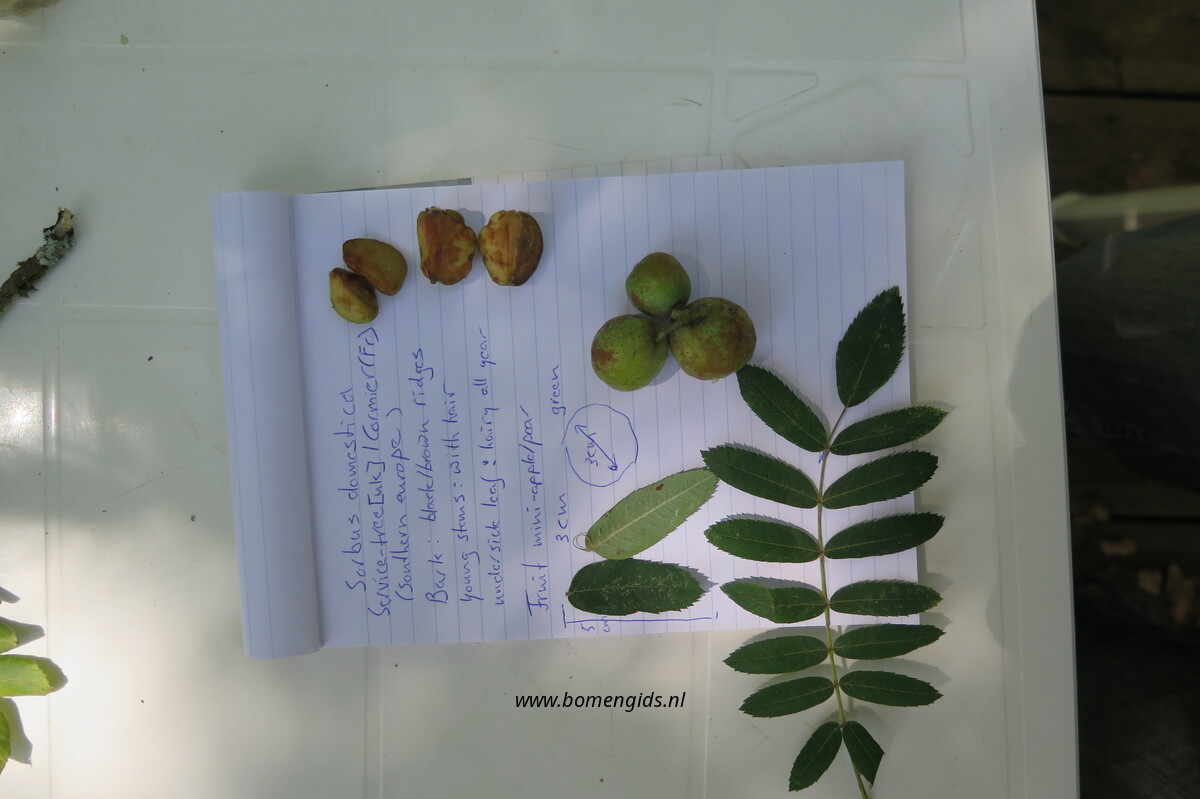 Sorbus domestica
Service-tree [uk] / Cormier (Fr)
(Southern europe)
Bark : black/brown ridges
Young stems : with hair
underside leaf : hairy all year
Fruit mini-apple/pear
3cm green
3cm
5
cm
www.bomengids.nl